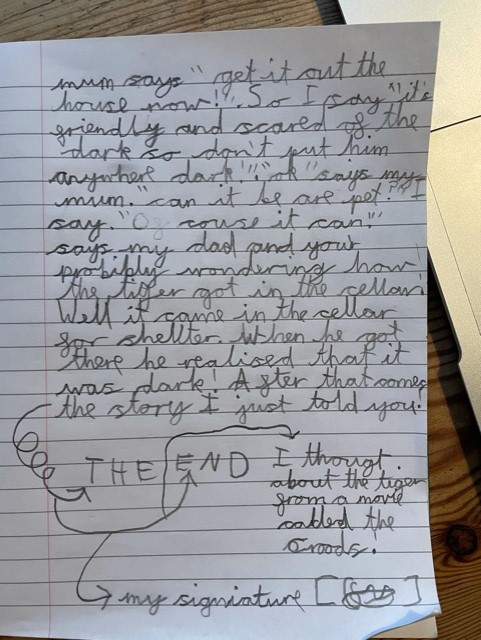 mum says " get it out the
house now!". So I say "it's
friendly and scared of the
dark so don't put him
anywhere dark"! "ok" says my
mum. "can it be are pet?" I
say. "Of couse it can!"
says my dad and your
probibly wondering how
the tiger got in the cellar!
Well it came in the cellar
for shellter. When he got
there he realised that it
was dark! After that comes
the story I just told you!
THE END
I thougt
about the tiger
from a movie
called the
Croods!
my signiature [ ]